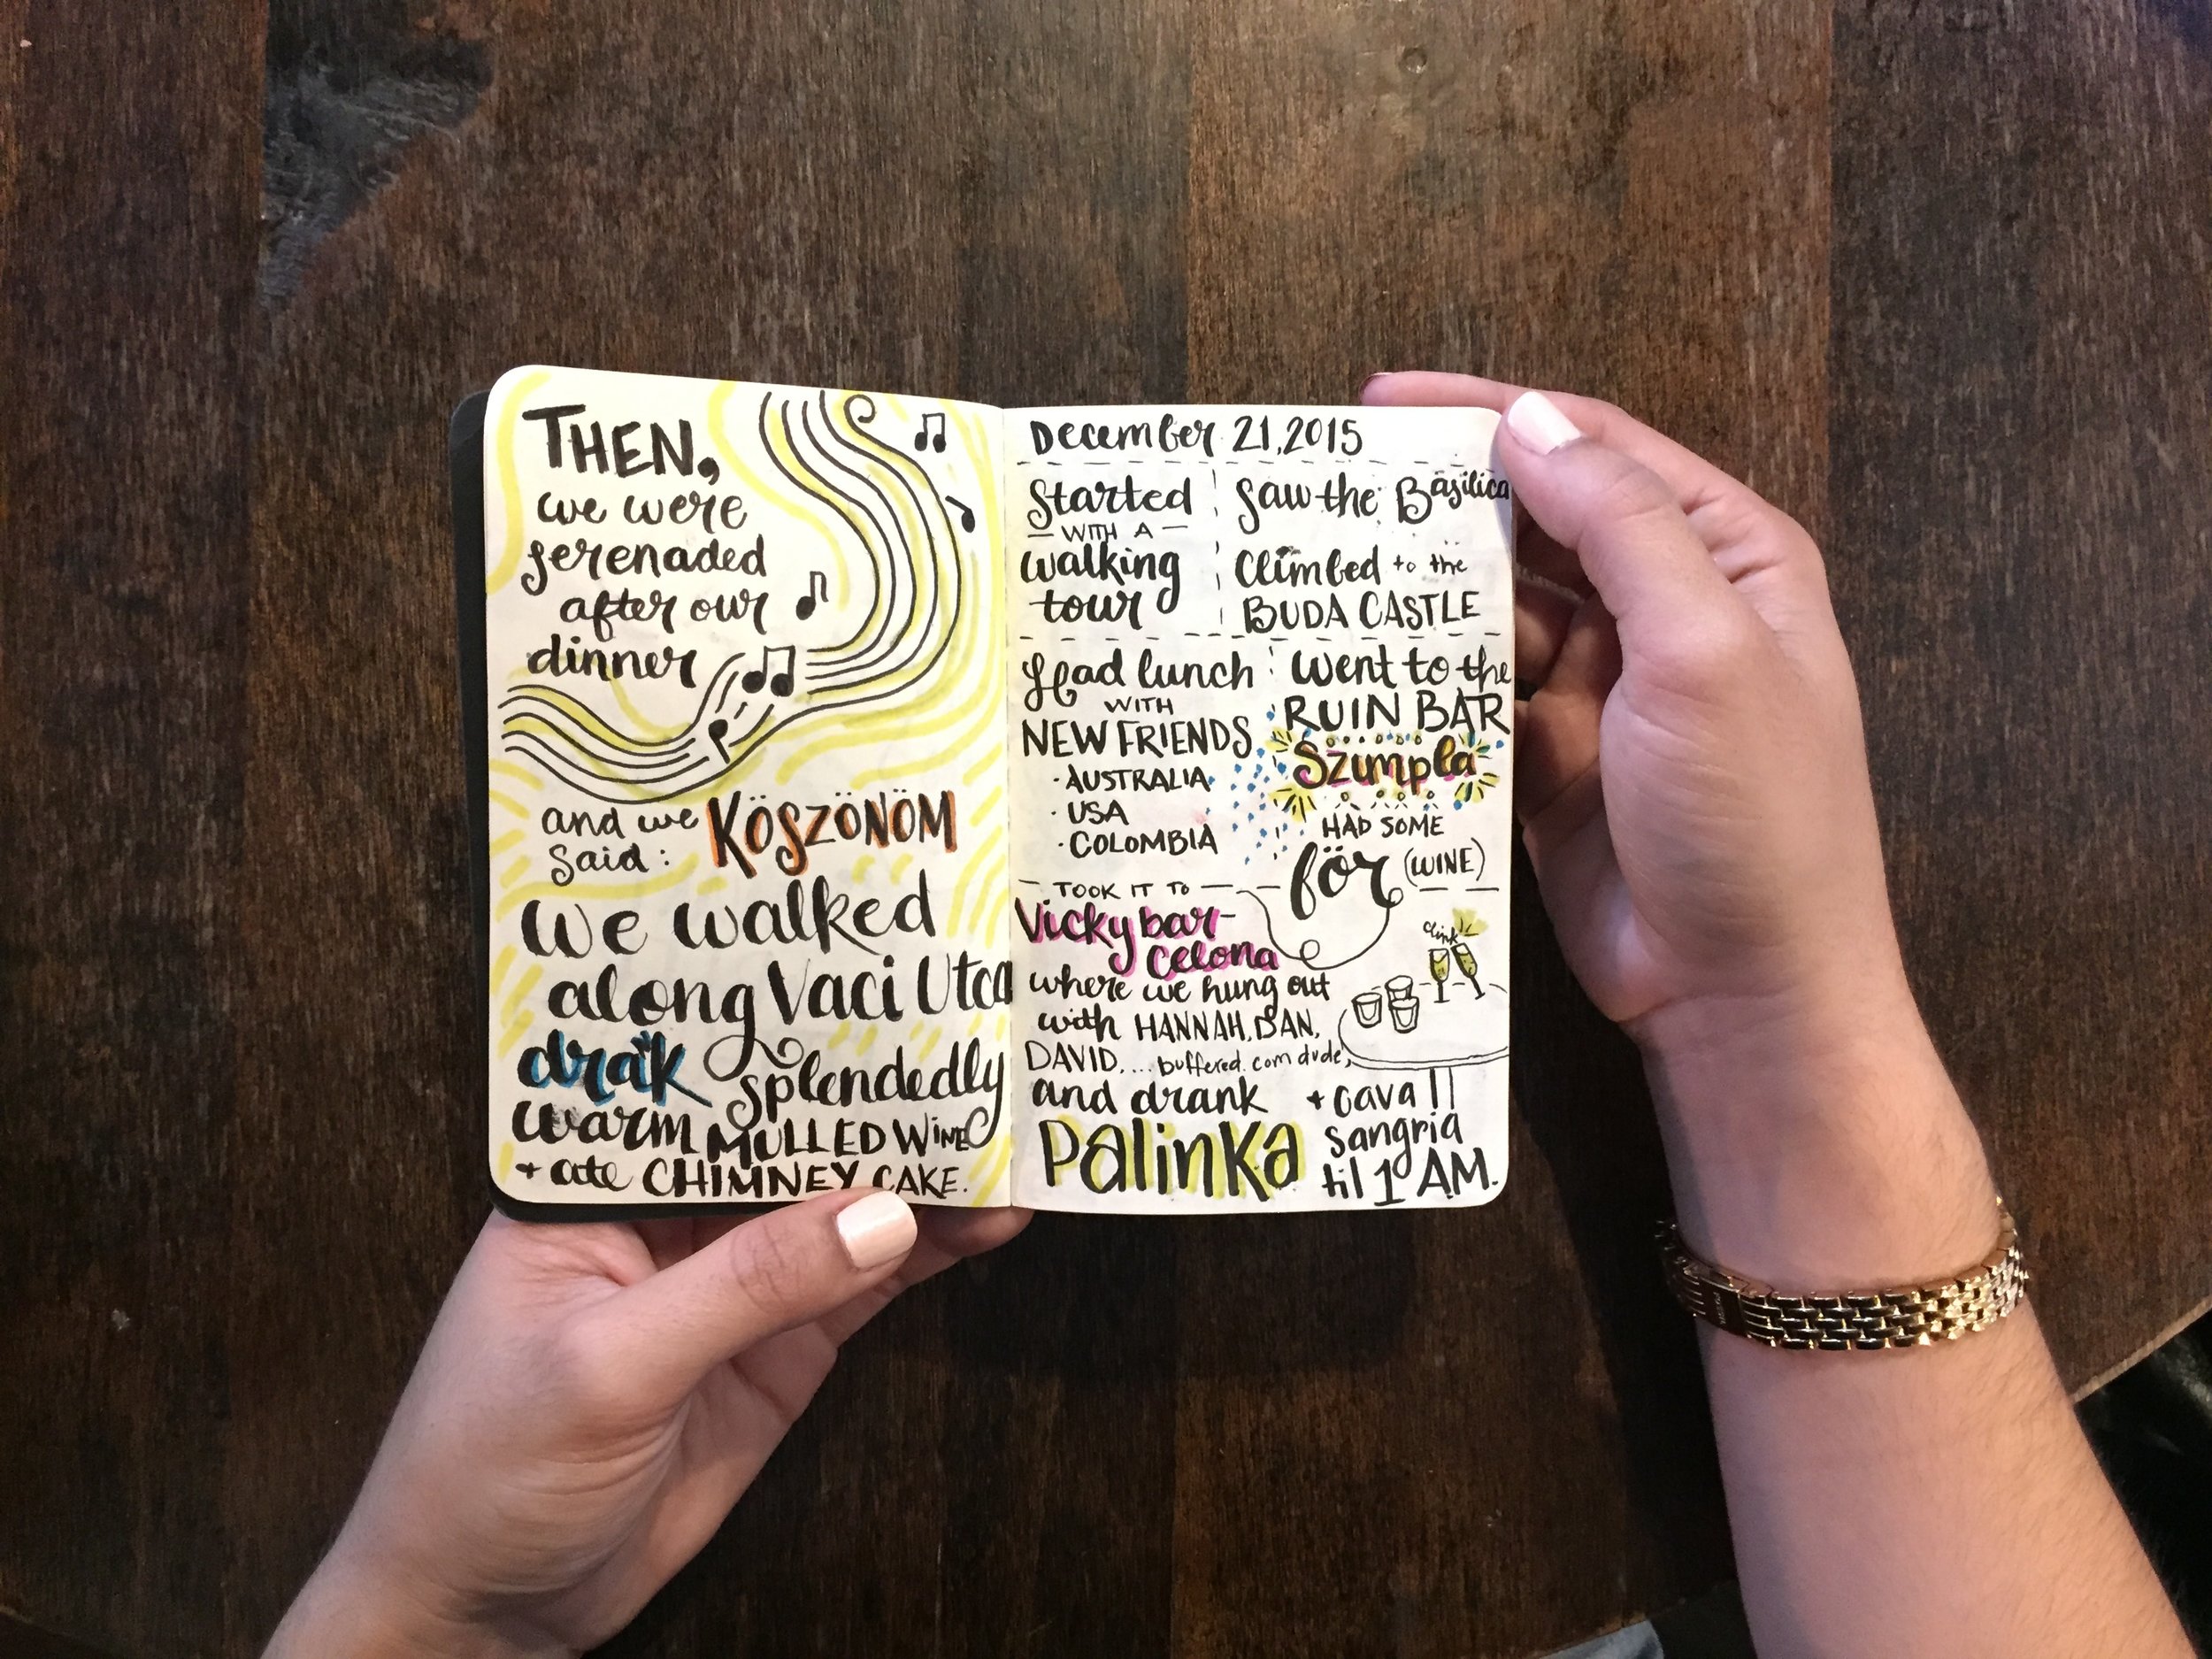 THEN,
we were
serenaded
after our
dinner
and we
said: KÖSZÖNÖM
we walked
along Vaci Utca
dräk splendedly
warm MULLED WINE
+ ate CHIMNEY CAKE.
December 21, 2015
Started
— WITH A —
walking
tour
Saw the Basilica
Climbed to the
BUDA CASTLE
Had lunch
WITH
NEW FRIENDS
· AUSTRALIA
· USA
· COLOMBIA
Went to the
RUIN BAR
Szimpla
HAD SOME
för (WINE)
— TOOK IT TO —
Vicky bar-
celona
where we hung out
with HANNAH, DAN,
DAVID, ... buffered.com dude,
and drank
Palinka
+ cava
sangria
til 1 AM.
clink